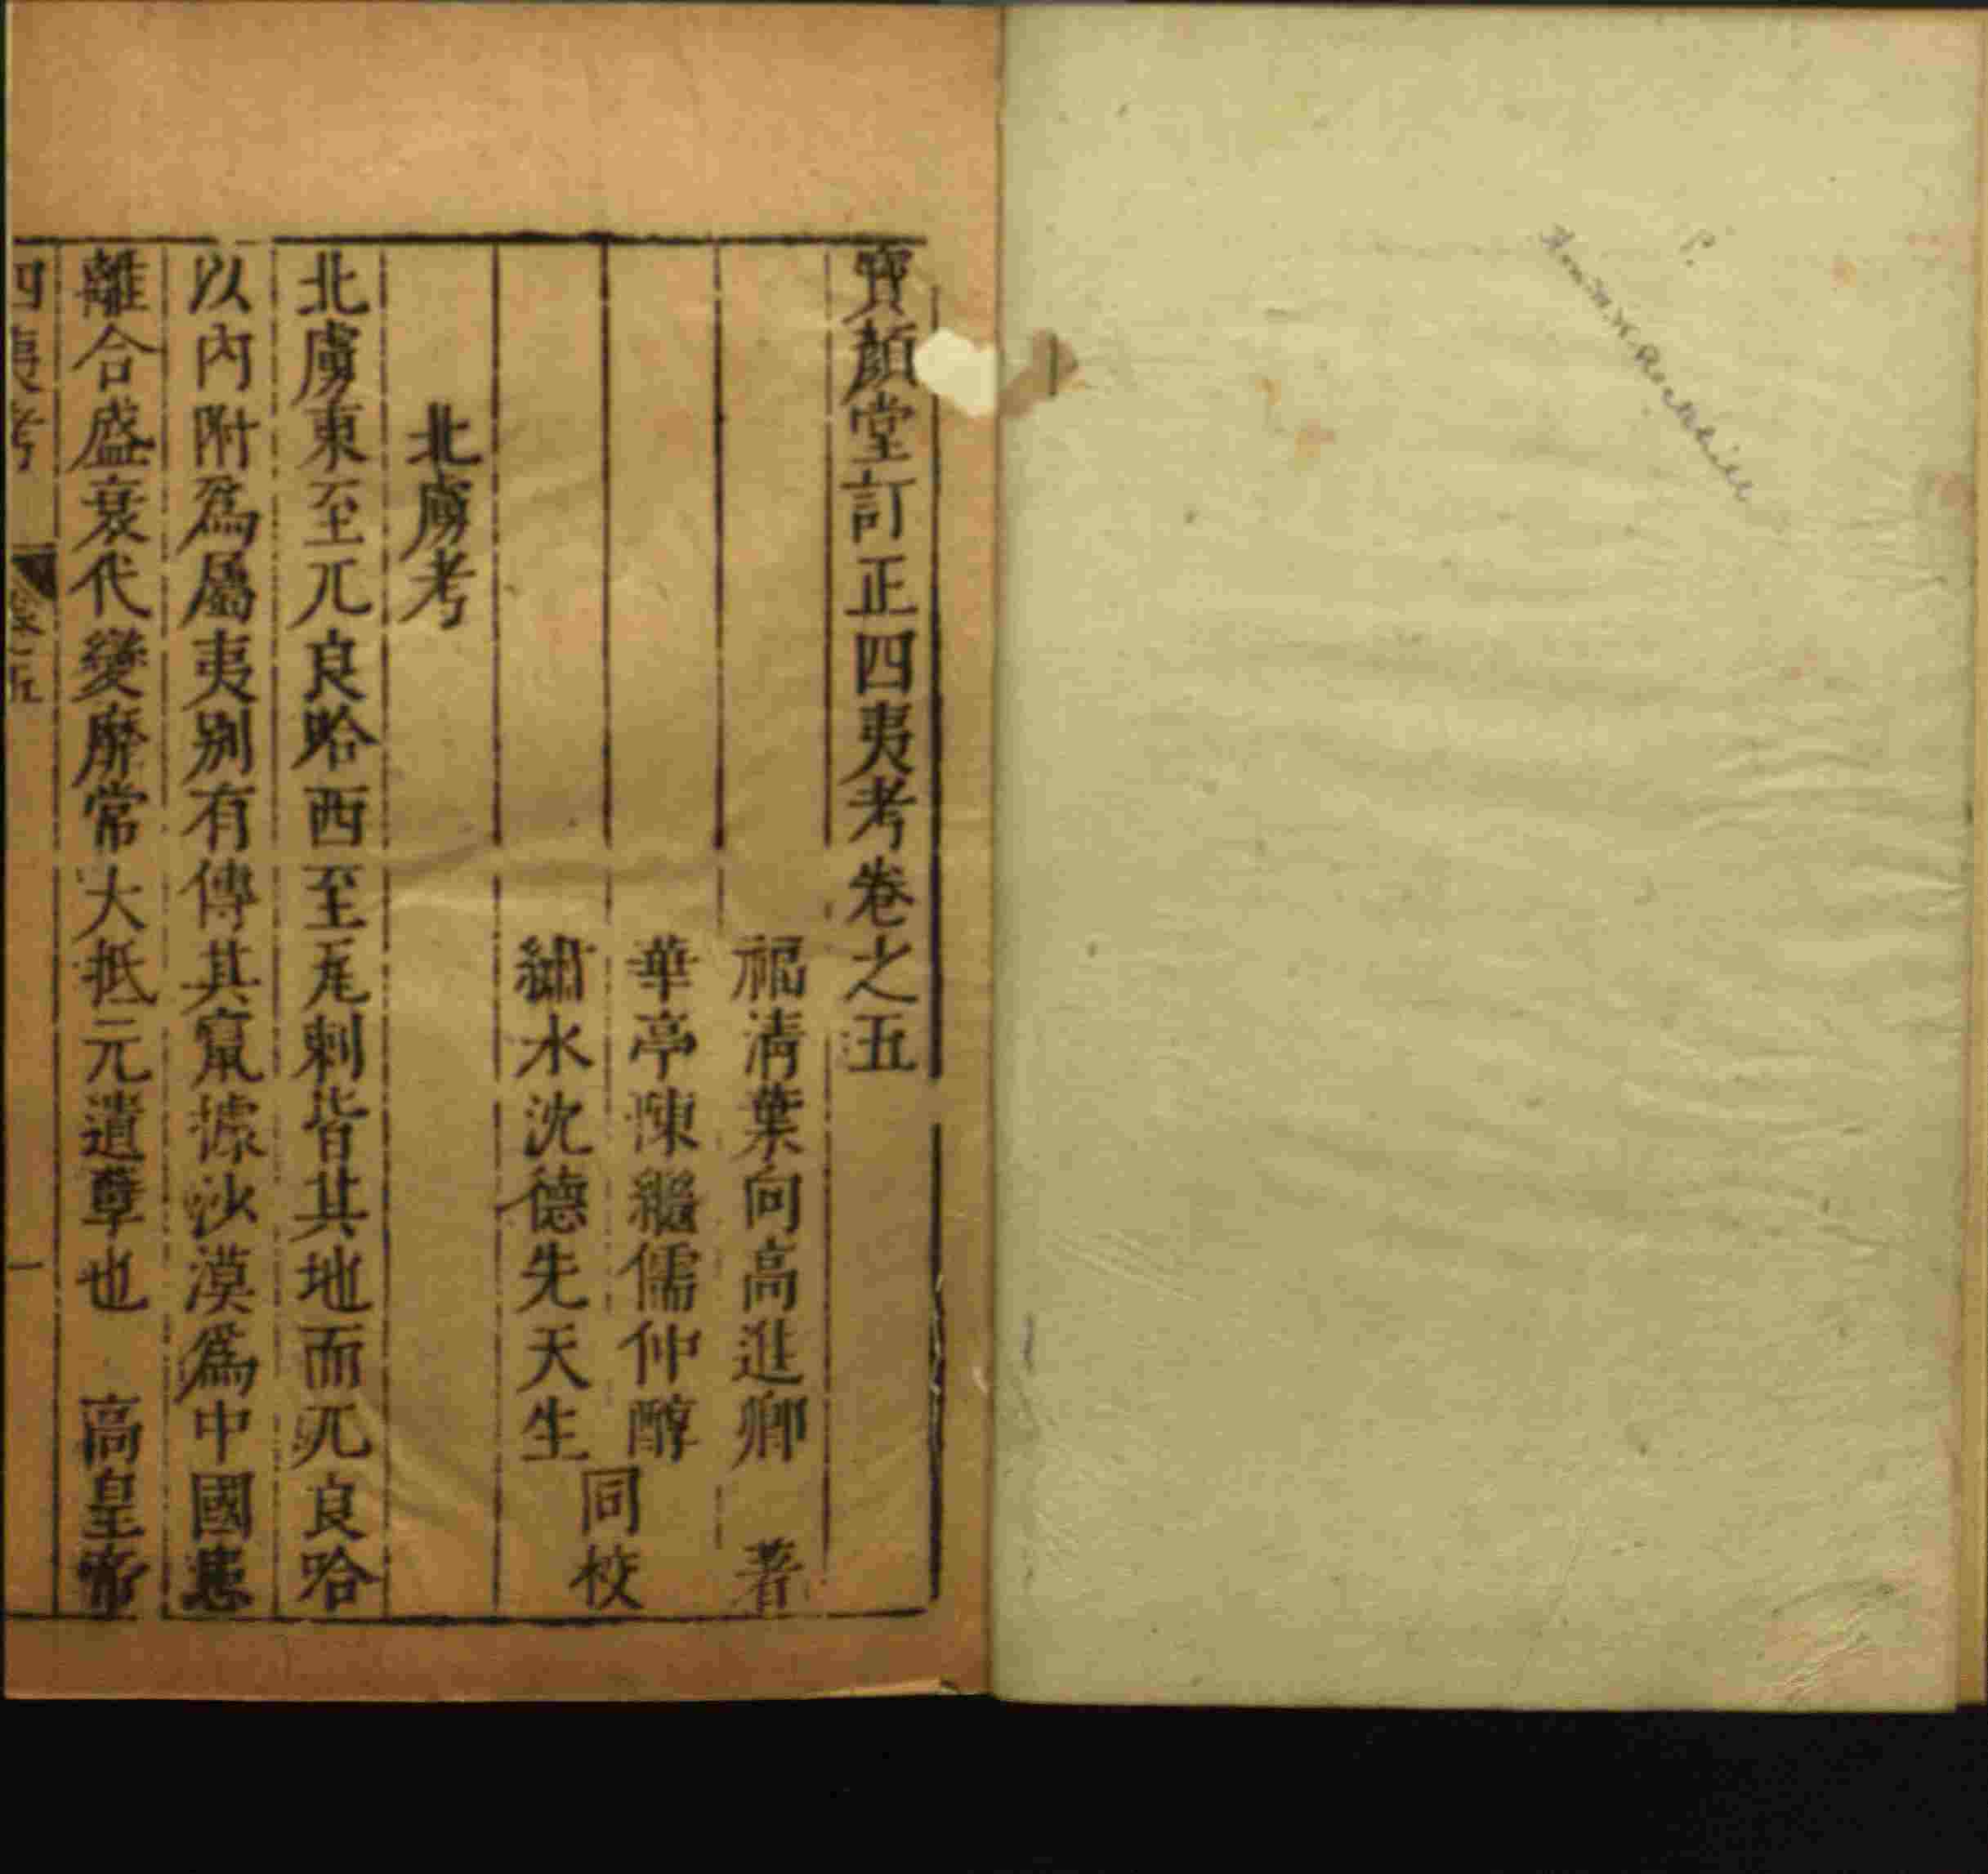 寶顏堂訂正四夷考卷之五
福清葉向高進卿 著
華亭陳繼儒仲醇
繡水沈德先天生
同校
北虜考
北虜東至兀良哈西至瓦剌皆其地而兀良哈
以內附爲屬夷別有傳其竄據沙漠爲中國患
離合盛衰代變靡常大抵元遺孽也 高皇帝
四夷考 卷之五 一
Rockhill